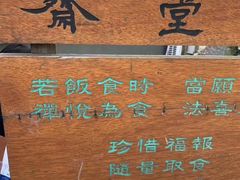 齋堂
若飯食時 當願
禪悅為食 法喜
珍惜福報
隨量取食